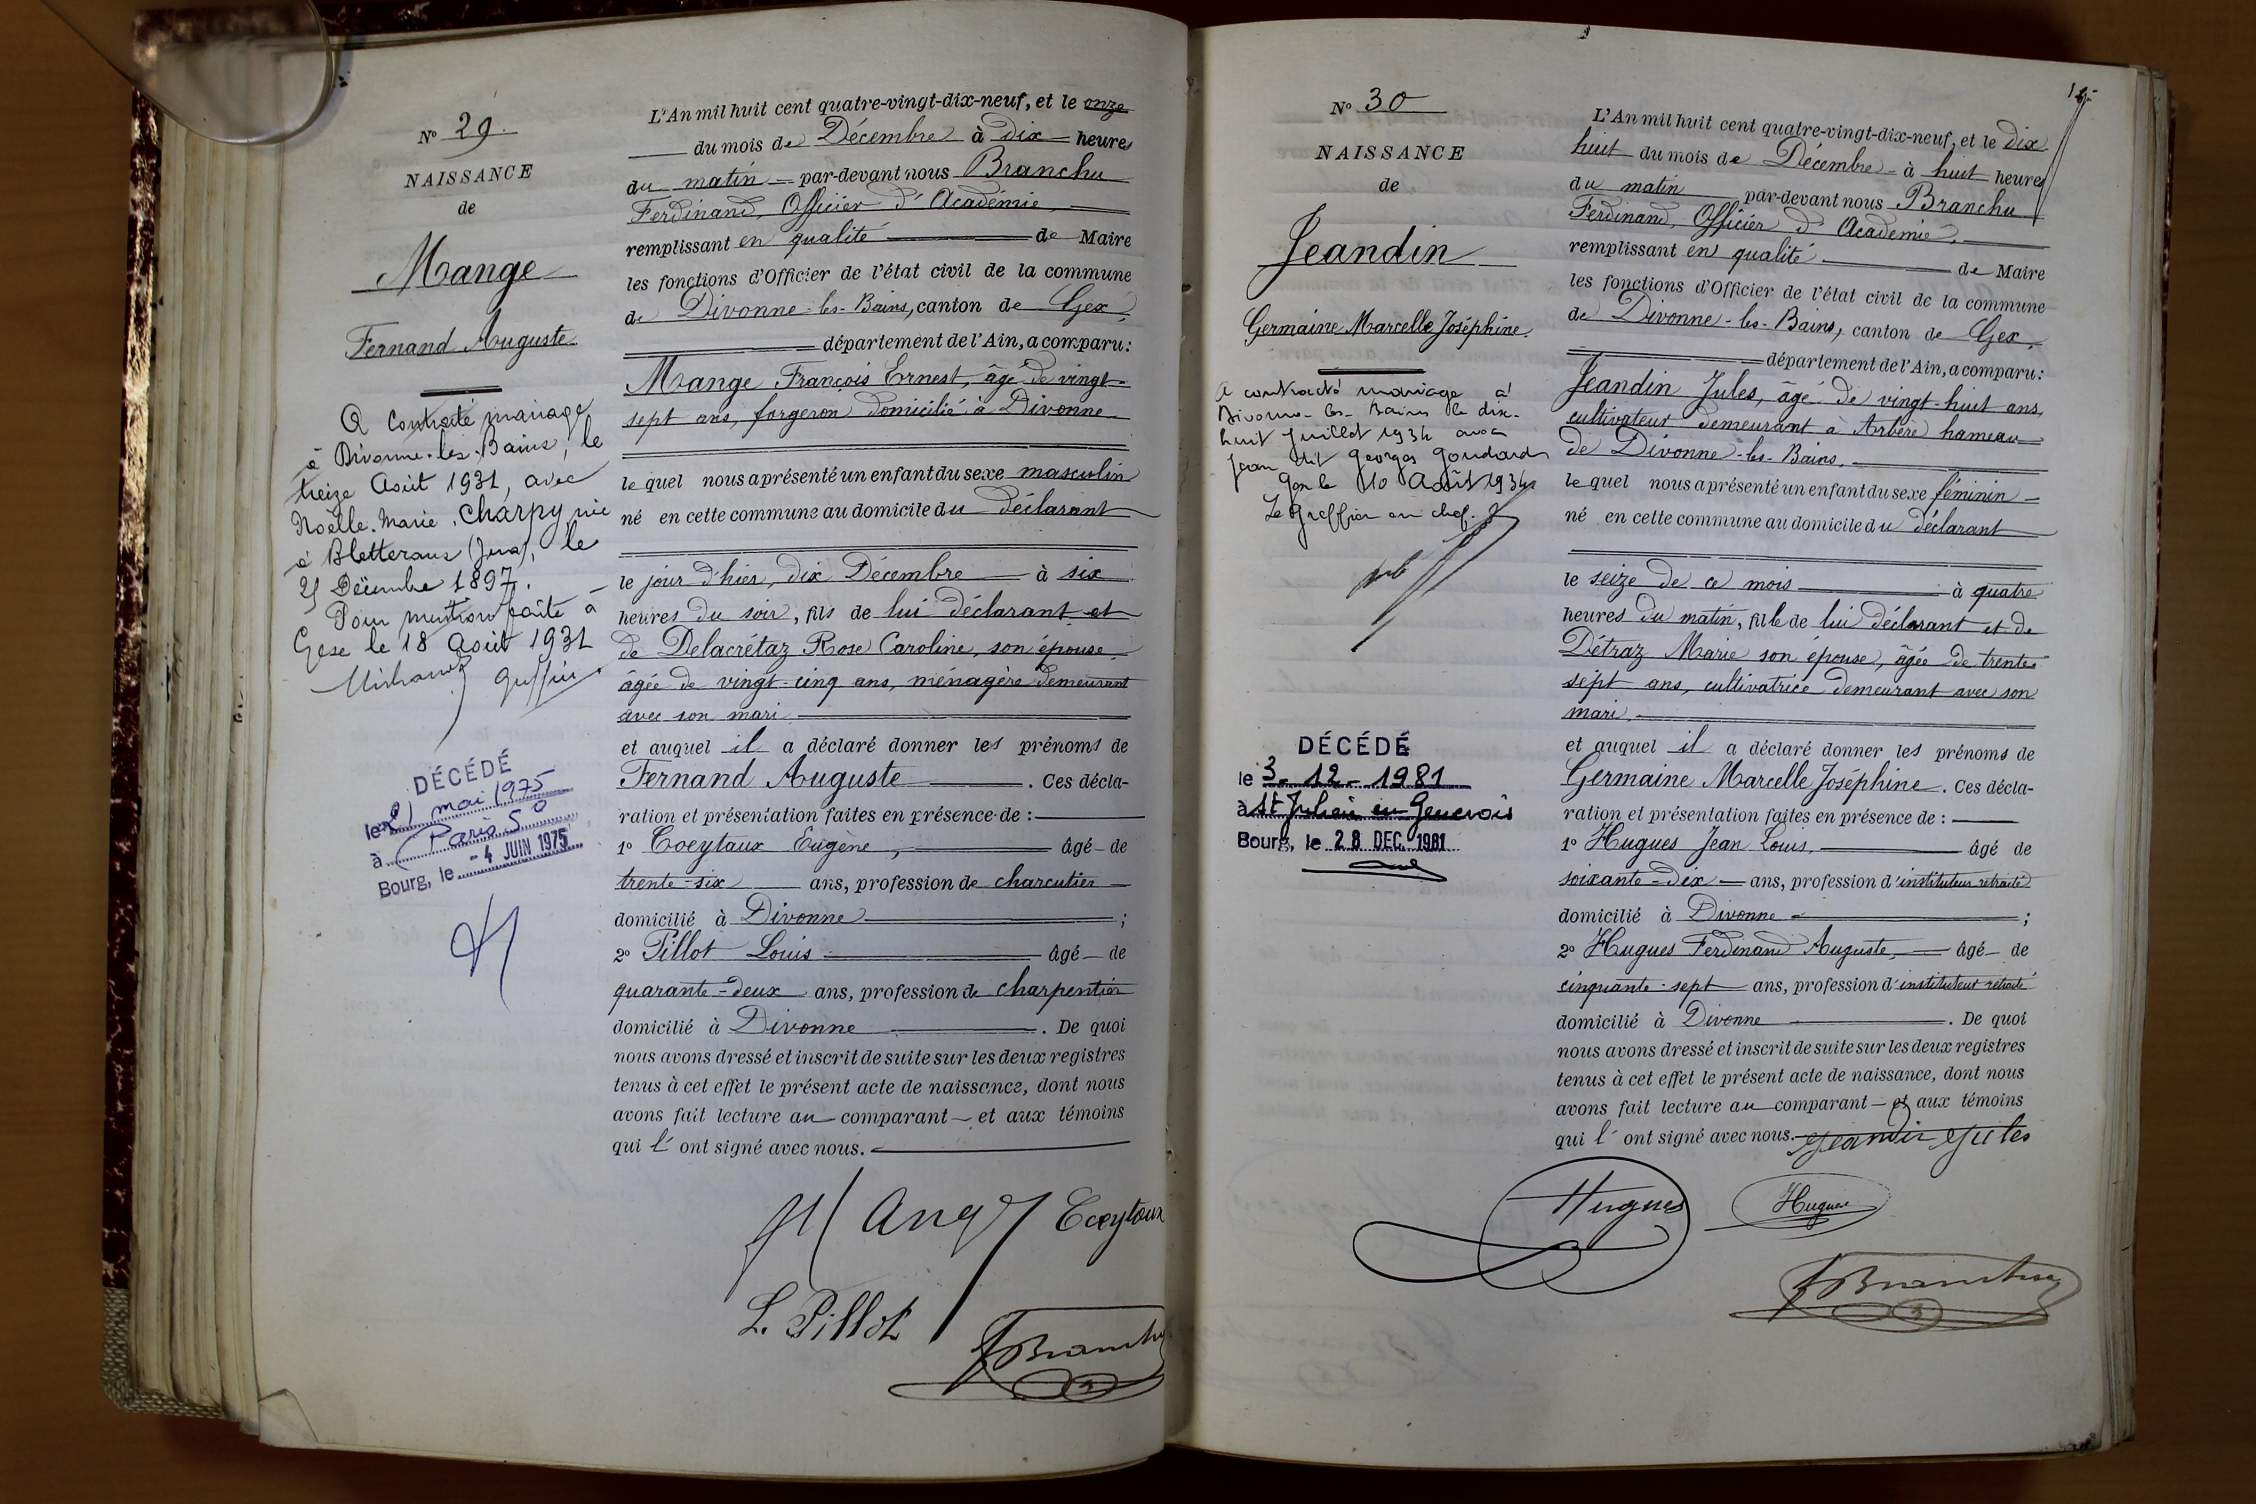 N° 29
NAISSANCE
de
Mange
Fernand Auguste
A contracté mariage
à Divonne-les-Bains, le
treize Août 1931, avec
Noëlle Marie Charpy, née
à Bletterans (Jura), le
25 Décembre 1897.
Pour mention faite à
Gex le 18 Août 1931
DÉCÉDÉ
le 21 mai 1975
à Paris 5°
Bourg, le -4 JUIN 1975
L'An mil huit cent quatre-vingt-dix-neuf, et le onze
du mois de Décembre à dix heures
du matin par-devant nous Branchu
Ferdinand, Officier d'Académie,
remplissant en qualité de Maire
les fonctions d'Officier de l'état civil de la commune
de Divonne-les-Bains, canton de Gex,
département de l'Ain, a comparu:
Mange François Ernest, âgé de vingt-
sept ans, forgeron domicilié à Divonne
le quel nous a présenté un enfant du sexe masculin
né en cette commune au domicile du déclarant
le jour d'hier, dix Décembre à six
heures du soir, fils de lui déclarant et
de Delacrétaz Rose Caroline, son épouse,
âgée de vingt-cinq ans, ménagère demeurant
avec son mari
et auquel il a déclaré donner les prénoms de
Fernand Auguste. Ces décla-
ration et présentation faites en présence de :
1° Coeytaux Eugène, âgé de
trente-six ans, profession de charcutier
domicilié à Divonne ;
2° Pillot Louis âgé de
quarante-deux ans, profession de charpentier
domicilié à Divonne. De quoi
nous avons dressé et inscrit de suite sur les deux registres
tenus à cet effet le présent acte de naissance, dont nous
avons fait lecture au comparant et aux témoins
qui l' ont signé avec nous.
Mange Ecoeytaux
L. Pillot
FBranchu
N° 30
NAISSANCE
de
Jeandin
Germaine Marcelle Joséphine.
A contracté mariage à
Divonne-les-Bains le dix-
huit Juillet 1934 avec
Jean dit Georges Goudard
Gex le 10 Août 1934
Le Greffier en chef.
DÉCÉDÉ
le 3-12-1981
à St Julien en Genevois
Bourg, le 28 DEC. 1981
L'An mil huit cent quatre-vingt-dix-neuf, et le dix
huit du mois de Décembre à huit heures
du matin par-devant nous Branchu
Ferdinand, Officier d'Académie,
remplissant en qualité de Maire
les fonctions d'Officier de l'état civil de la commune
de Divonne-les-Bains, canton de Gex,
département de l'Ain, a comparu:
Jeandin Jules, âgé de vingt-huit ans,
cultivateur demeurant à Arbère hameau
de Divonne-les-Bains,
le quel nous a présenté un enfant du sexe féminin
né en cette commune au domicile du déclarant
le seize de ce mois à quatre
heures du matin, fille de lui déclarant et de
Détraz Marie son épouse, âgée de trente
sept ans, cultivatrice demeurant avec son
mari.
et auquel il a déclaré donner les prénoms de
Germaine Marcelle Joséphine. Ces décla-
ration et présentation faites en présence de :
1° Hugues Jean Louis, âgé de
soixante-dix ans, profession d'instituteur retraité
domicilié à Divonne ;
2° Hugues Ferdinand Auguste, âgé de
cinquante-sept ans, profession d'instituteur retraité
domicilié à Divonne. De quoi
nous avons dressé et inscrit de suite sur les deux registres
tenus à cet effet le présent acte de naissance, dont nous
avons fait lecture au comparant et aux témoins
qui l' ont signé avec nous. Jeandin Jules
Hugues Hugues
FBranchu